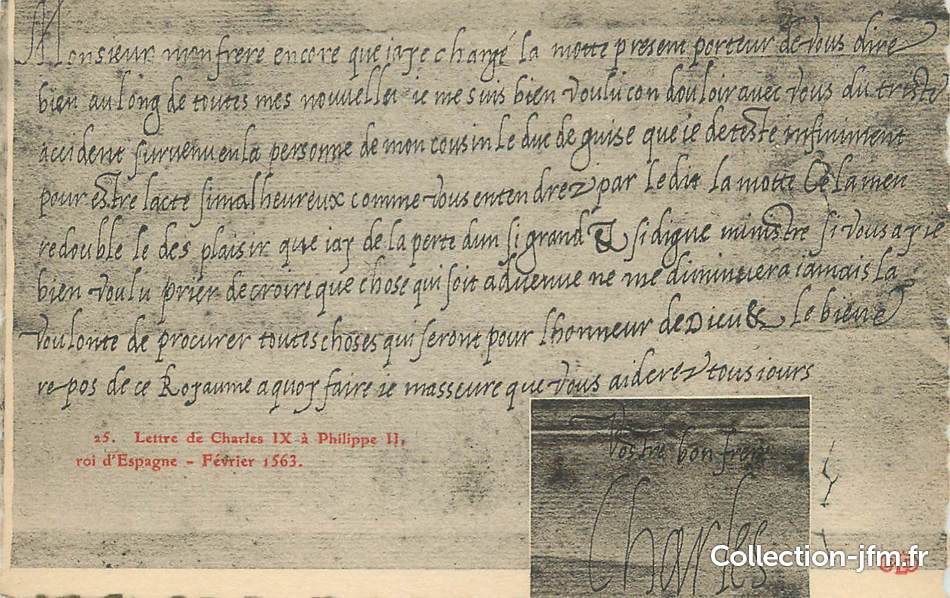 Monsieur mon frere encore que iaye chargé la motte present porteur de vous dire
bien au long de toutes mes nouvelles ie me suis bien voulu condouloir avec vous du triste
accident survenu en la personne de mon cousin le duc de guise que ie deteste infiniment
pour estre lacte si malheureux comme vous entendrez par ledit la motte Cela men
redouble le desplaisir que iay de la perte dun si grand & si digne ministre si vous ay ie
bien voulu prier de croire que chose qui soit advenue ne me diminuera iamais la
voulonte de procurer toutes choses qui seront pour lhonneur de Dieu & le bien et
repos de ce Royaume a quoy faire ie masseure que vous aiderez tousiours
25. Lettre de Charles IX à Philippe II,
roi d'Espagne - Février 1563.
Vostre bon frere
Charles
Collection-jfm.fr